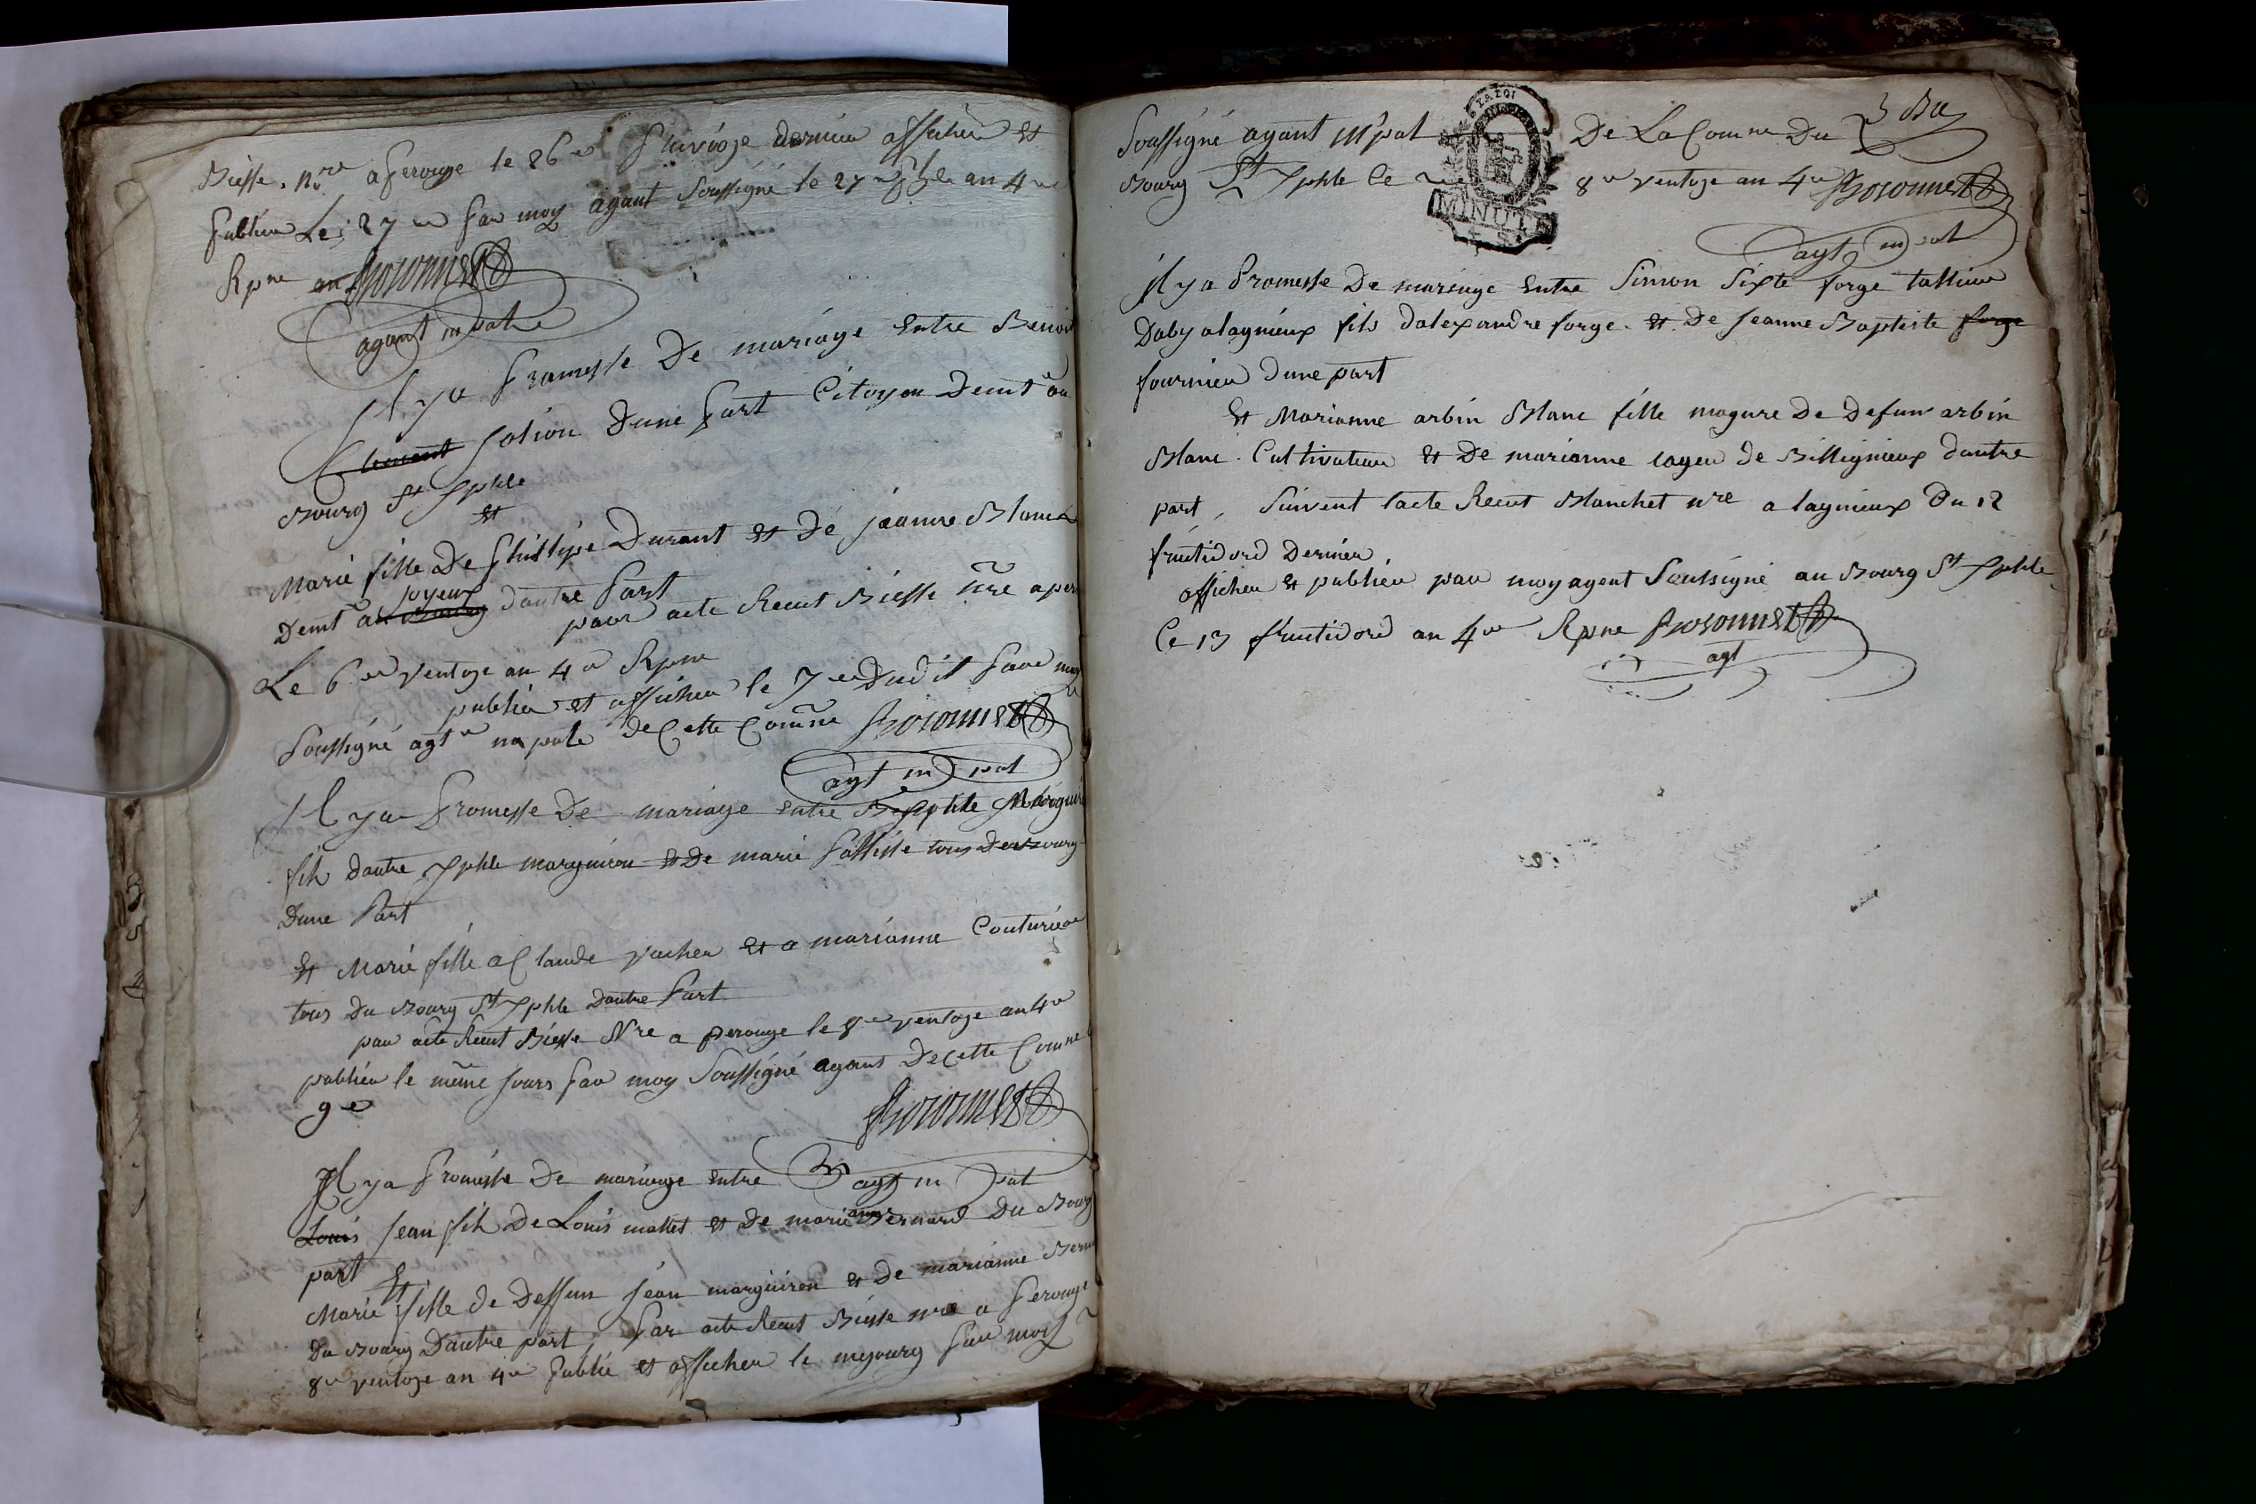 Biesse nre a perouge le 26e pluvioze dernier afficher et
publier Le 27e par moy agant soussigné le 27e an 4e
Rpne Bozonnet
agant mpal
Il ya promesse De mariage entre Benoit
Clement jolivon D'une part Citoyen Demt au
Bourg St xphle
et
Marie fille De phillipe Durant et De jeanne Blanc
joyeux
Demt a au Bourg d'autre part
par acte Recut Biesse nre a per
Le 6e ventoze an 4e Rpne
publier et afficher le 7e Dudit par moy
soussigné agt mpale de Cette Comne Bozonnet
agt mpal
Il ya promesse De mariage entre xphle Marguiro
fils dautre xphle marguiron et De marie pallisse tous Du Bourg
Dune part
et Marie fille a Claude vacher et a marianne Couturier
tous Du Bourg St xphle Dautre part
par acte Recut Biesse Nre a perouge le 8e ventoze an 4e
publier le même jours par moy soussigné agant De Cette Comne
9e
Bozonnet
Il ya promesse De mariage entre agt m pal
anne
Louis jean fils De Louis mallet et De marie Bernard Du Bourg
part
et
Marie fille de Deffun jean marguiron et De marianne Bern
Du Bourg D'autre part, par acte Recut Biesse nre a perouge
8e ventoze an 4e publié et afficher le par moy
soussigné agant mpal De La Comne Du
Bourg St xphle Ce 8e ventoze an 4e Bozonnet
MINUTE
agt mpal
il ya promesse De mariage entre simon sixte forge tallieur
Daby a lagnieux fils dalexandre forge et De jeanne Baptiste forge
fournier dune part
et Marianne arbin Blanc fille mageure De Defun arbin
Blanc Cultivateur et De marianne de Billignieux dautre
part, suivent lacte Recut Blanchet nre a lagnieux Du 12
fruitidord Dernier,
afficher et publier par moy agent soussigné au Bourg St xphle
Ce 13 fruitidord an 4e Rpne Bozonnet
agt